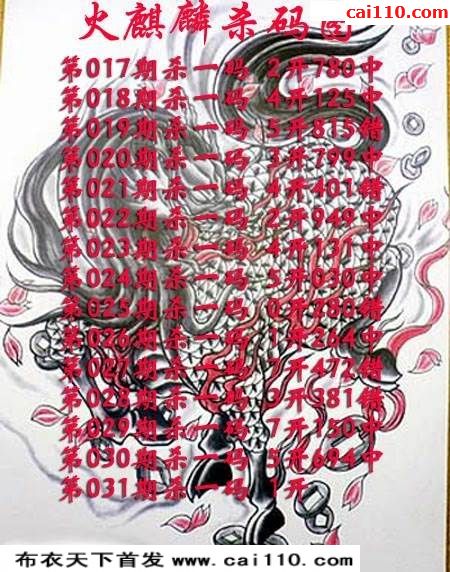 cai110.com
火麒麟杀码
第017期杀一码 2开780中
第018期杀一码 4开125中
第019期杀一码 5开815错
第020期杀一码 3开799中
第021期杀一码 4开401错
第022期杀一码 2开949中
第023期杀一码 4开131中
第024期杀一码 5开030中
第025期杀一码 0开280错
第026期杀一码 1开264中
第027期杀一码 7开472错
第028期杀一码 3开381错
第029期杀一码 7开150中
第030期杀一码 5开694中
第031期杀一码 1开
布衣天下首发 www.cai110.com